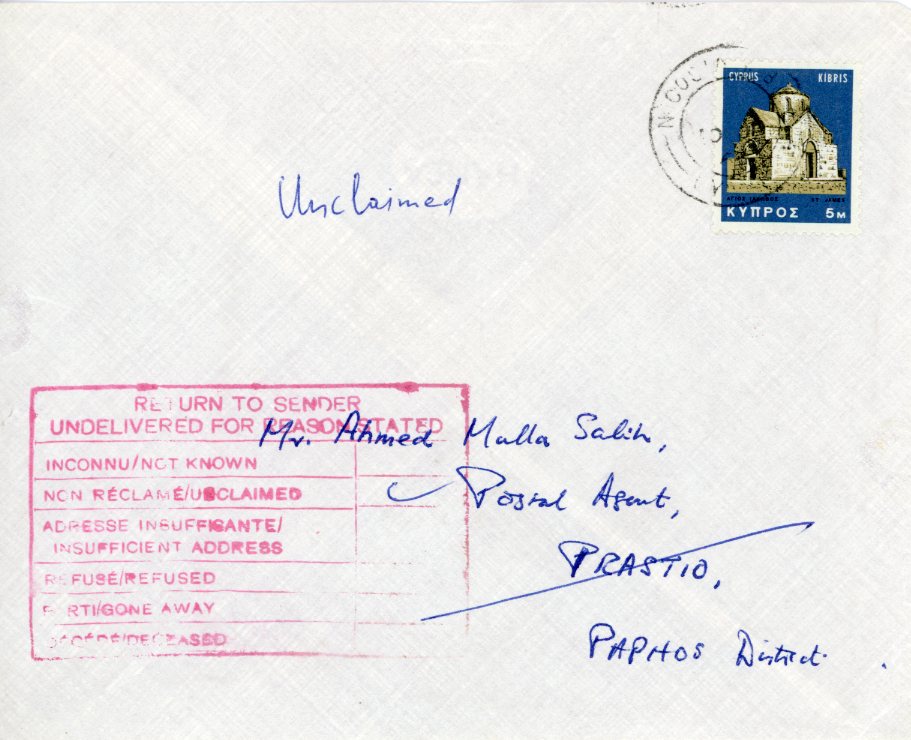 NICOSIA
CYPRUS KIBRIS
ΑΓΙΟΣ ΙΑΚΩΒΟΣ ST. JAMES
ΚΥΠΡΟΣ 5M
Unclaimed
RETURN TO SENDER
UNDELIVERED FOR REASON STATED
Mr. Ahmed Mulla Salih,
INCONNU/NOT KNOWN
NON RÉCLAMÉ/UNCLAIMED
Postal Agent,
ADRESSE INSUFFISANTE/
INSUFFICIENT ADDRESS
PRASTIO,
REFUSÉ/REFUSED
PARTI/GONE AWAY
DÉCÉDÉ/DECEASED
PAPHOS District.